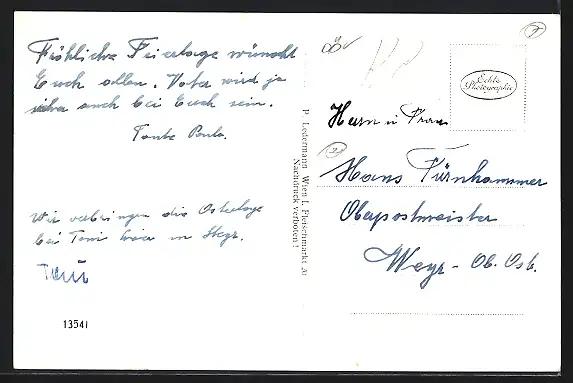 Fröhliche Feiertage wünscht
Euch allen. Vater wird ja
sicher auch bei Euch sein.
Tante Paula.
Wir verbringen die Ostertage
bei Toni in Steyr.
13541
P. Ledermann Wien I. Fleischmarkt 20
Nachdruck verboten!
Echte
Photographie
Herrn u Frau
Hans Fürnhammer
Oberpostmeister
Weyr - Ob. Öst.